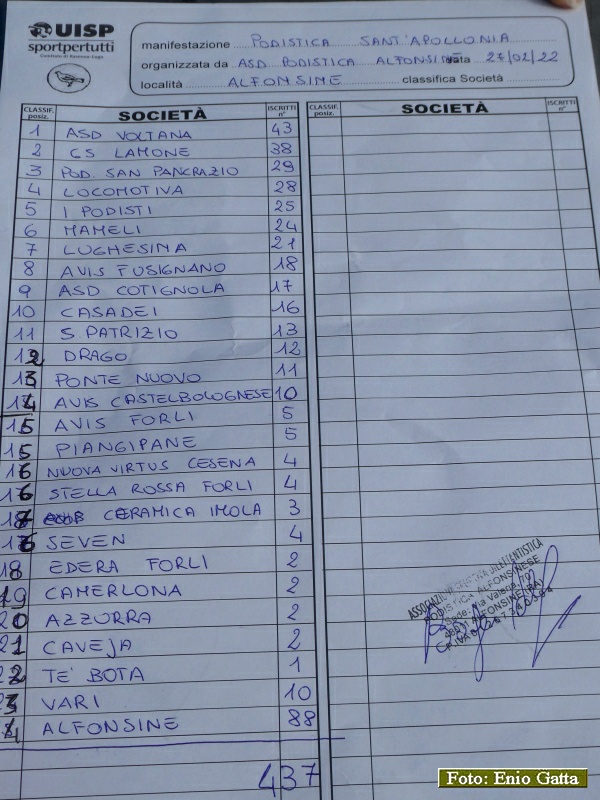 UISP
sportpertutti
Comitato di Ravenna-Lugo
manifestazione PODISTICA SANT'APOLLONIA
organizzata da ASD PODISTICA ALFONSINE data 27/02/22
località ALFONSINE classifica Società
CLASSIF. posiz. SOCIETÀ ISCRITTI n° CLASSIF. posiz. SOCIETÀ ISCRITTI n°
1 ASD VOLTANA 43
2 CS LAMONE 38
3 POD. SAN PANCRAZIO 29
4 LOCOMOTIVA 28
5 I PODISTI 25
6 MAMELI 24
7 LUGHESINA 21
8 AVIS FUSIGNANO 18
9 ASD COTIGNOLA 17
10 CASADEI 16
11 S. PATRIZIO 13
12 DRAGO 12
13 PONTE NUOVO 11
14 AVIS CASTELBOLOGNESE 10
15 AVIS FORLI 5
15 PIANGIPANE 5
16 NUOVA VIRTUS CESENA 4
16 STELLA ROSSA FORLI 4
CERAMICA IMOLA 3
16 SEVEN 4
18 EDERA FORLI 2
19 CAMERLONA 2
20 AZZURRA 2
21 CAVEJA 2
22 TE' BOTA 1
23 VARI 10
ALFONSINE 88
437
PODISTICA ALFONSINESE
Foto: Enio Gatta